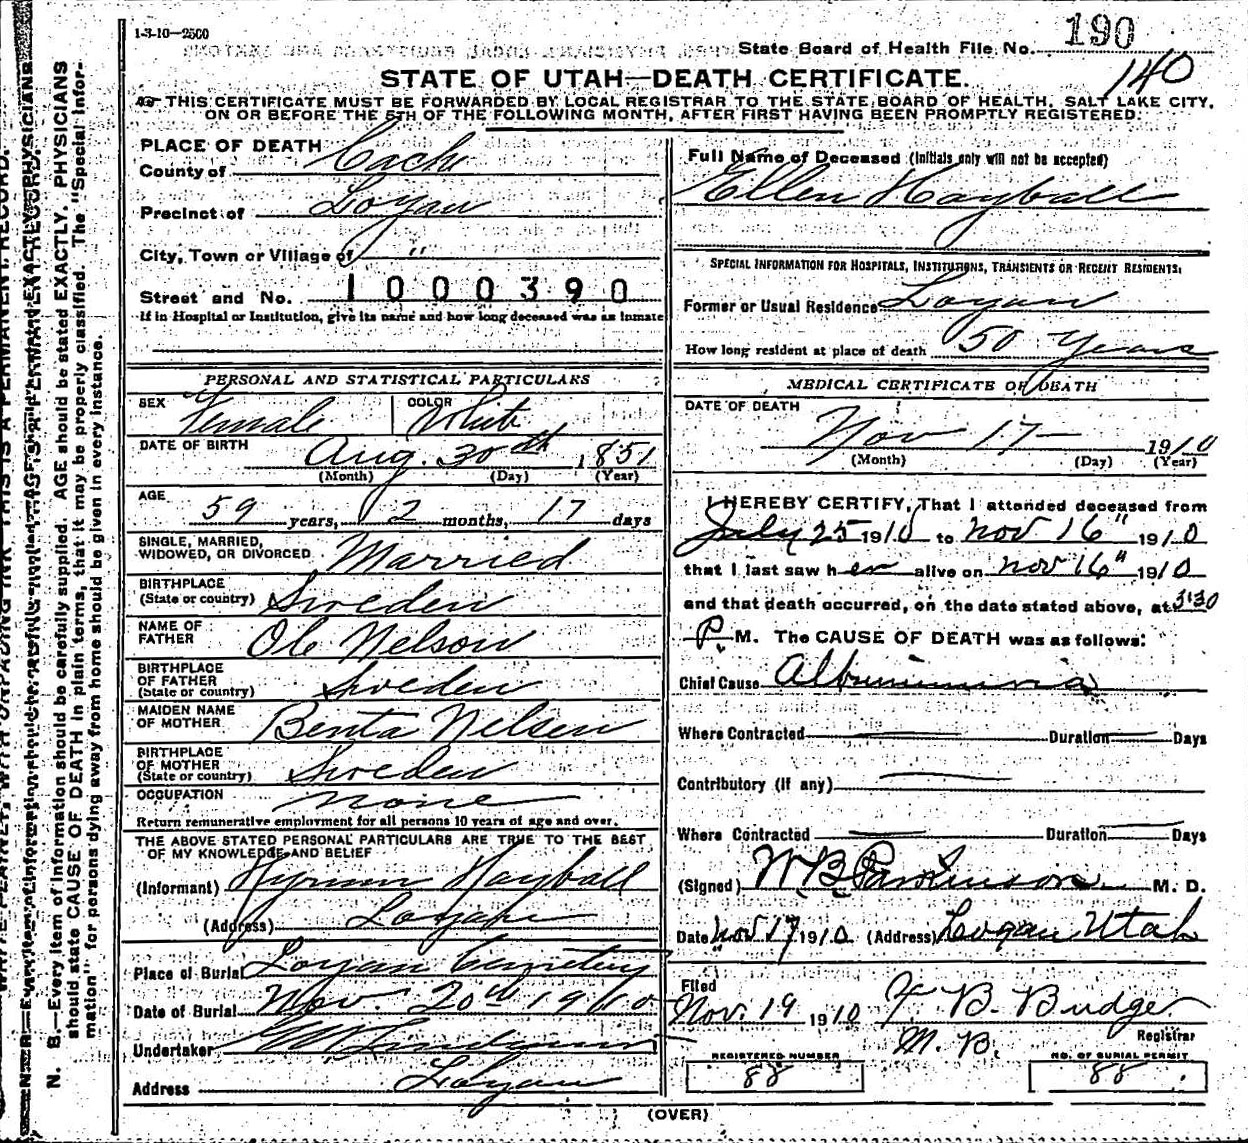 1-3-10—2500
State Board of Health File No. 190
140
STATE OF UTAH—DEATH CERTIFICATE.
THIS CERTIFICATE MUST BE FORWARDED BY LOCAL REGISTRAR TO THE STATE BOARD OF HEALTH, SALT LAKE CITY,
ON OR BEFORE THE 5TH OF THE FOLLOWING MONTH, AFTER FIRST HAVING BEEN PROMPTLY REGISTERED.
PLACE OF DEATH
County of Cache
Precinct of Logan
City, Town or Village of "
Street and No. 1000390
If in Hospital or Institution, give its name and how long deceased was as inmate
PERSONAL AND STATISTICAL PARTICULARS
SEX Female COLOR White
DATE OF BIRTH Aug. 30th 1851
(Month) (Day) (Year)
AGE 59 years, 2 months, 17 days
SINGLE, MARRIED,
WIDOWED, OR DIVORCED Married
BIRTHPLACE
(State or country) Sweden
NAME OF
FATHER Ole Nelson
BIRTHPLACE
OF FATHER
(State or country) Sweden
MAIDEN NAME
OF MOTHER Benta Nelsen
BIRTHPLACE
OF MOTHER
(State or country) Sweden
OCCUPATION none
Return remunerative employment for all persons 10 years of age and over.
THE ABOVE STATED PERSONAL PARTICULARS ARE TRUE TO THE BEST
OF MY KNOWLEDGE AND BELIEF
(Informant) Hyrum Hayball
(Address) Logan
Place of Burial Logan Cemetery
Date of Burial Nov. 20th 1910
Undertaker
Address Logan
Full Name of Deceased (Initials only will not be accepted)
Ellen Hayball
SPECIAL INFORMATION FOR HOSPITALS, INSTITUTIONS, TRANSIENTS OR RECENT RESIDENTS.
Former or Usual Residence Logan
How long resident at place of death 50 Years
MEDICAL CERTIFICATE OF DEATH
DATE OF DEATH
Nov 17— 1910
(Month) (Day) (Year)
I HEREBY CERTIFY, That I attended deceased from
July 25 1910 to Nov 16" 1910
that I last saw her alive on Nov 16" 1910
and that death occurred, on the date stated above, at 3:30
P. M. The CAUSE OF DEATH was as follows:
Chief Cause Albuminuria
Where Contracted Duration Days
Contributory (if any)
Where Contracted Duration Days
(Signed) W B Parkinson M. D.
Date Nov 17 1910 (Address) Logan Utah
Filed
Nov. 19 1910 F. B. Budge
Registrar
REGISTERED NUMBER
88
NO. OF BURIAL PERMIT
88
(OVER)
N. B.—Every item of information should be carefully supplied. AGE should be stated EXACTLY. PHYSICIANS
should state CAUSE OF DEATH in plain terms, that it may be properly classified. The "Special Infor-
mation" for persons dying away from home should be given in every instance.